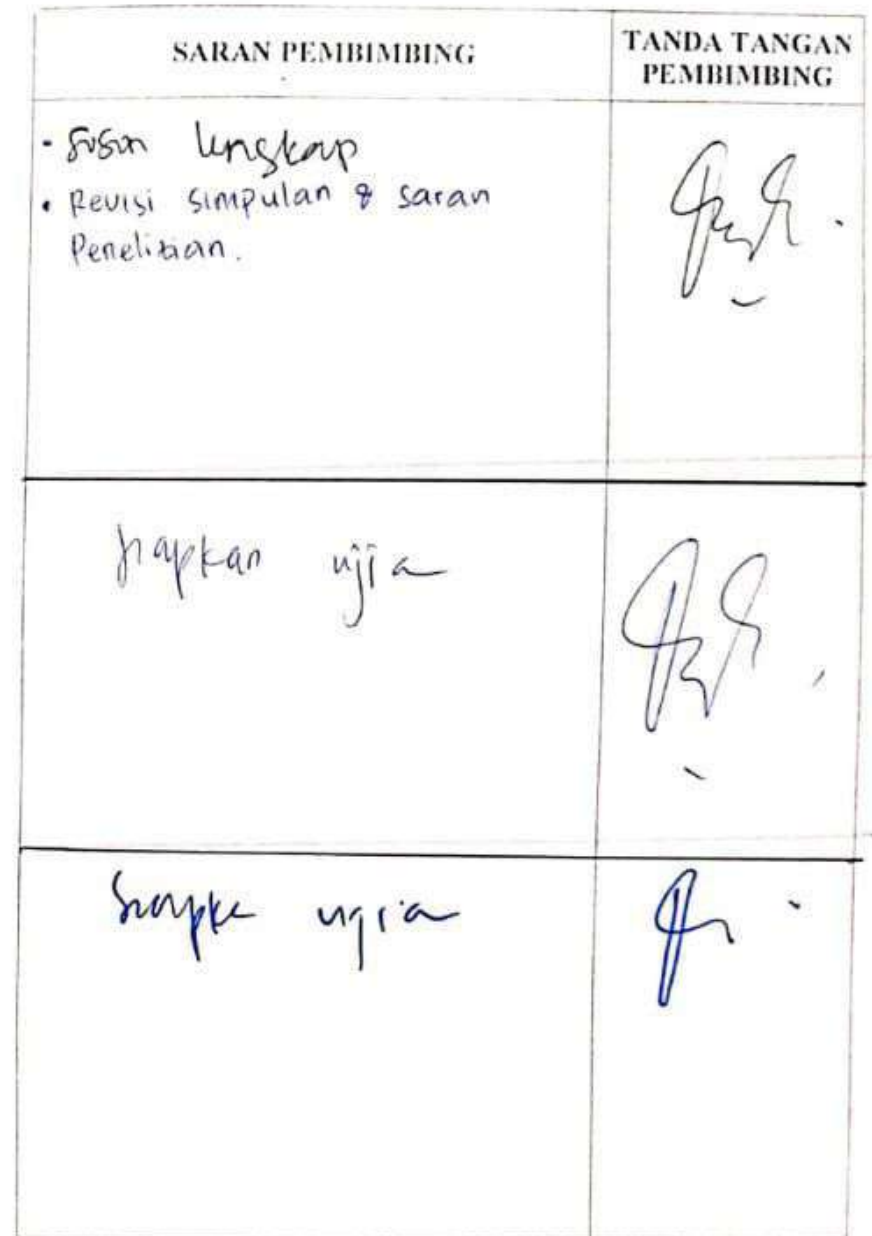 SARAN PEMBIMBING
TANDA TANGAN
PEMBIMBING
- Susun lengkap
• Revisi simpulan & saran
Penelitian.
siapkan ujia